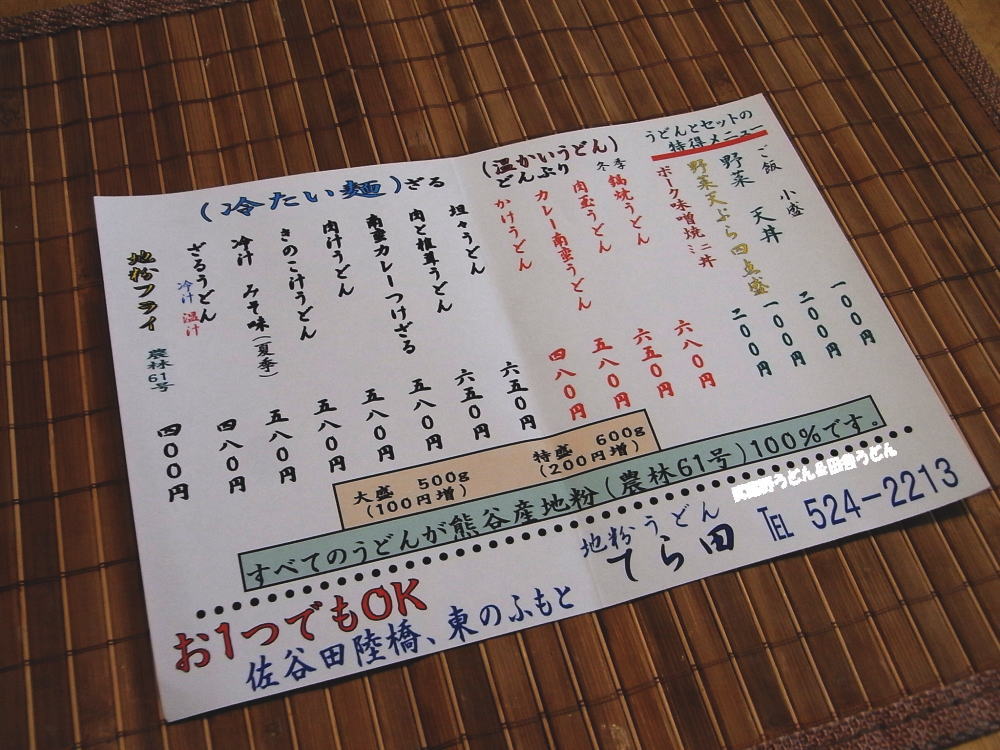 うどんとセットの
特得メニュー
ご飯 小盛 一00円
野菜 天丼 二00円
野菜天ぷら四点盛 一00円
ポーク味噌焼ミニ丼 二00円
(温かいうどん)
どんぶり
冬季
鍋焼うどん 六八0円
肉玉うどん 六五0円
カレー南蛮うどん 五八0円
かけうどん 四八0円
(冷たい麺)ざる
坦々うどん 六五0円
肉と椎茸うどん 六五0円
南蛮カレーつけざる 五八0円
肉汁うどん 五八0円
きのこ汁うどん 五八0円
冷汁 みそ味(夏季) 五八0円
ざるうどん 四八0円
冷汁 温汁
地粉フライ 農林61号 四00円
大盛 500g 特盛 600g
(100円増) (200円増)
すべてのうどんが熊谷産地粉(農林61号)100%です。
武蔵野うどん&田舎うどん
お1つでもOK
地粉うどん
てら田 TEL 524-2213
佐谷田陸橋、東のふもと